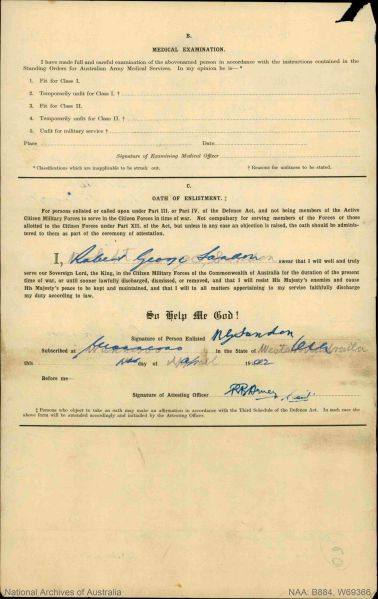 B.
MEDICAL EXAMINATION.
I have made full and careful examination of the abovenamed person in accordance with the instructions contained in the
Standing Orders for Australian Army Medical Services. In my opinion he is—*
1. Fit for Class I.
2. Temporarily unfit for Class I. †
3. Fit for Class II.
4. Temporarily unfit for Class II. †
5. Unfit for military service †
Place Date
Signature of Examining Medical Officer
* Classifications which are inapplicable to be struck out. † Reasons for unfitness to be stated.
C.
OATH OF ENLISTMENT. ‡
For persons enlisted or called upon under Part III. or Part IV. of the Defence Act, and not being members of the Active
Citizen Military Forces to serve in the Citizen Forces in time of war. Not compulsory for serving members of the Forces or those
allotted to the Citizen Forces under Part XII. of the Act, but unless in any case an objection is raised, the oath should be adminis-
tered to them as part of the ceremony of attestation.
I, Robert George Sandon swear that I will well and truly
serve our Sovereign Lord, the King, in the Citizen Military Forces of the Commonwealth of Australia for the duration of the present
time of war, or until sooner lawfully discharged, dismissed, or removed, and that I will resist His Majesty's enemies and cause
His Majesty's peace to be kept and maintained, and that I will in all matters appertaining to my service faithfully discharge
my duty according to law.
So Help Me God!
Signature of Person Enlisted RG Sandon
Subscribed at in the State of
this day of April 1942
Before me—
Signature of Attesting Officer
‡ Persons who object to take an oath may make an affirmation in accordance with the Third Schedule of the Defence Act. In such case the
above form will be amended accordingly and initialled by the Attesting Officer.
National Archives of Australia NAA: B884, W69366